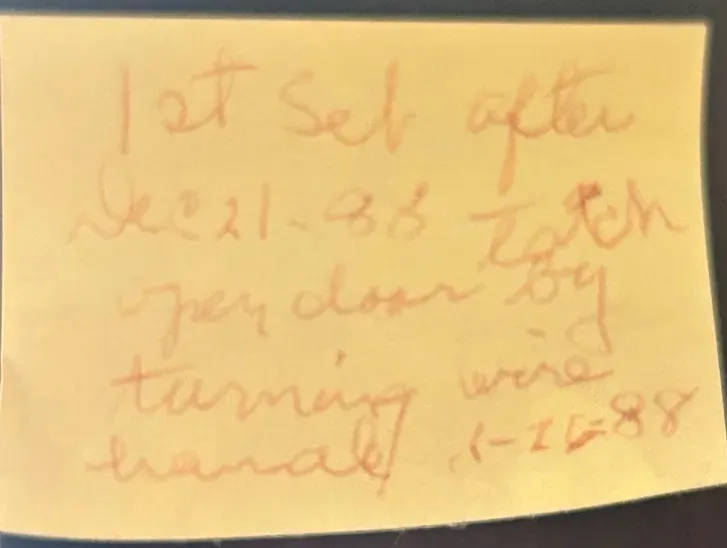 1st Set after
Dec 21-88
open door by
turning wire
handle -88